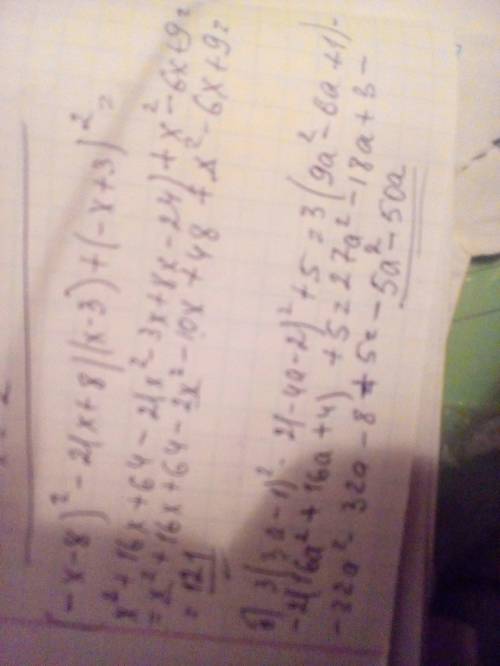 (-x-8)² - 2(x+8)(x-3) + (-x+3)² =
x² + 16x + 64 - 2(x² 3x + 8x - 24) + x² - 6x + 9 =
= x² + 16x + 64 - 2x² - 10x + 48 + x² - 6x + 9 =
= 121
б) 3(3a-1)² - 2(-4a-2)² + 5 = 3(9a² - 6a + 1) -
- 2(16a² + 16a + 4) + 5 = 27a² - 18a + 3 -
- 32a² - 32a - 8 + 5 = - 5a² - 50a